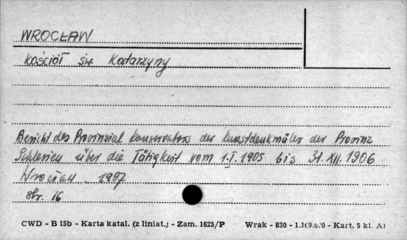 WROCŁAW
kościół św. Katarzyny
Bericht des Provinzial Konservators der Kunstdenkmäler der Provinz
Schlesien über die Tätigkeit vom 1.I.1905 bis 31.XII.1906
Wrocław 1907
str. 16
CWD - B 15b - Karta katal. (z liniat.) - Zam. 1625/P Wrak - 830 - - Kart. 5 kl. A1